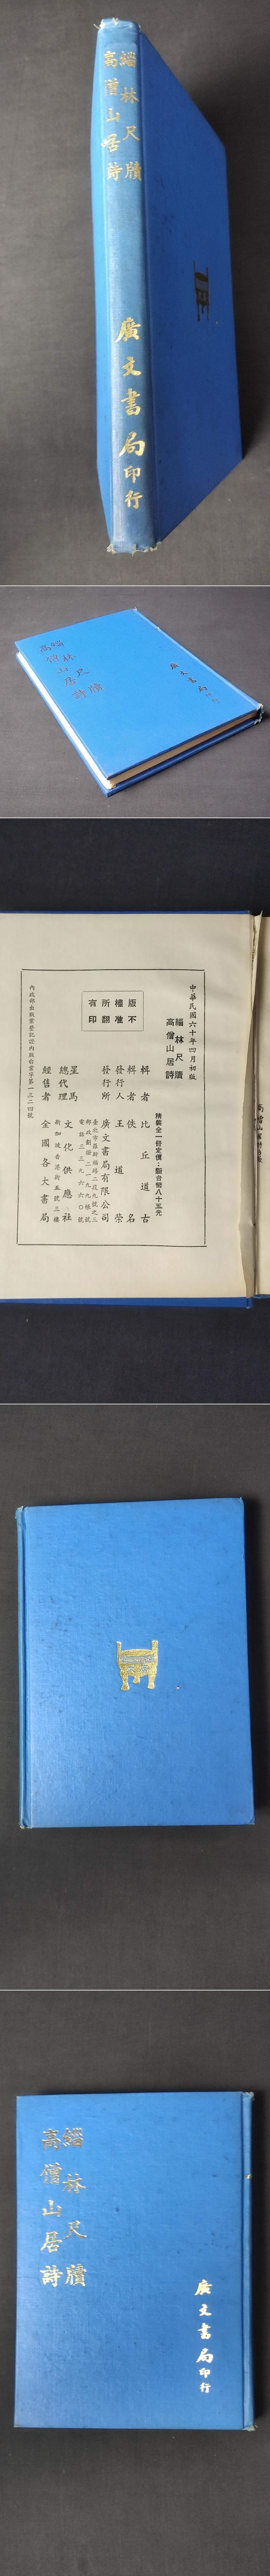 緇林尺牘
高僧山居詩
廣文書局印行
緇林尺牘
高僧山居詩
廣文書局印行
中華民國六十年四月初版
緇林尺牘
高僧山居詩
精裝全一冊定價：新台幣八十五元
版權所有
不准翻印
輯者 比丘道古
輯者 佚名
發行人 王道榮
發行所 廣文書局有限公司
星馬總代理 文化供應社
經售者 全國各大書局
緇林尺牘
高僧山居詩
廣文書局印行